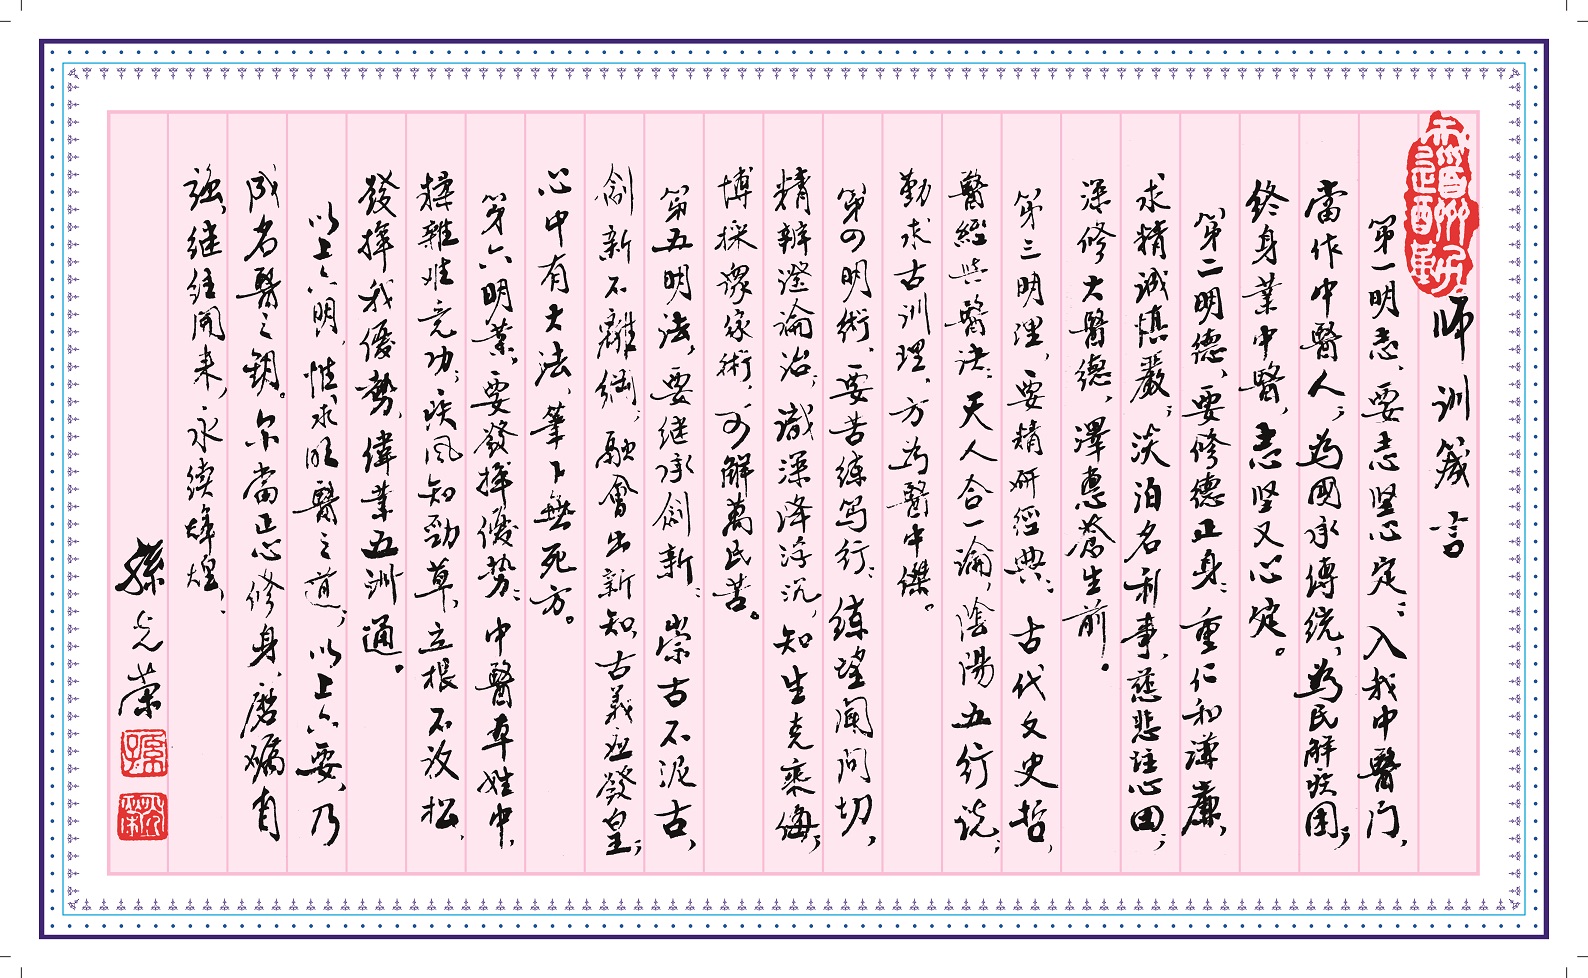 師訓箴言
第一明志，要志坚心定：入我中醫门，
當作中醫人；為國承傳统，為民解疾困；
终身業中醫，志坚又心定。
第二明德，要修德正身：重仁和谦廉，
求精诚慎嚴；淡泊名利事，慈悲注心田；
深修大醫德，澤惠蒼生前。
第三明理，要精研经典：古代文史哲，
醫經與醫诀：天人合一論，陰陽五行说；
勤求古训理，方為醫中傑。
第四明術，要苦练写行：练望闻问切，
精辨證論治；識深降浮沉，知生克乘侮；
博採眾家術，可解萬民苦。
第五明法，要继承創新：崇古不泥古，
創新不離綱；融會出新知，古義应發皇；
心中有大法，筆下無死方。
第六明業，要發揮優势：中醫草姓中，
擇難性竞功；疾风知勁草，立根不放松，
發揮我優勢，偉業五洲通。
以上六明，惟求明醫之道；以上六要，乃
成名醫之钥。尔當正心修身，磨煸自
强，继往開来，永续辉煌。
孫光荣